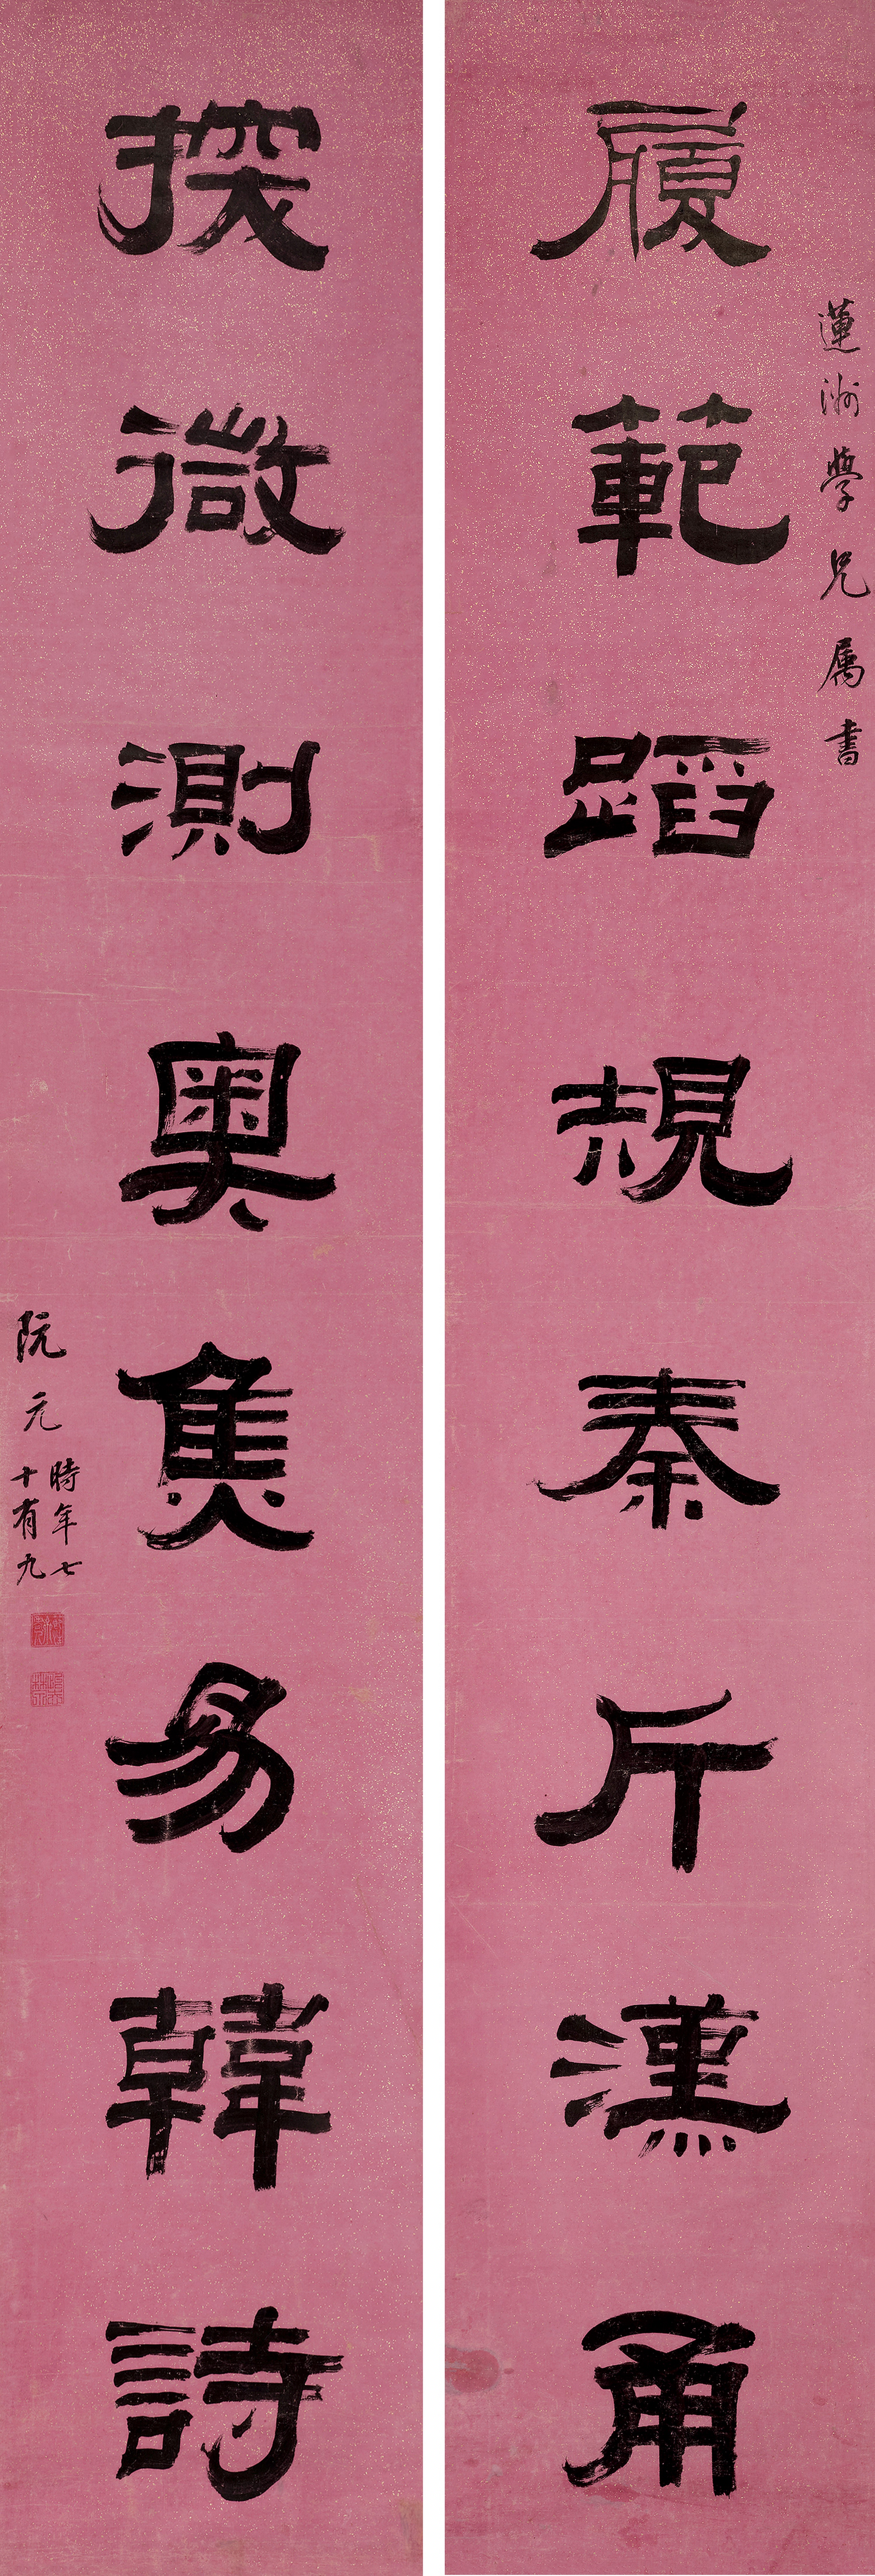 蓮洲學兄属書
履範蹈規秦斤漢甬
探微測奧焦易韓詩
阮元
時年七
十有九